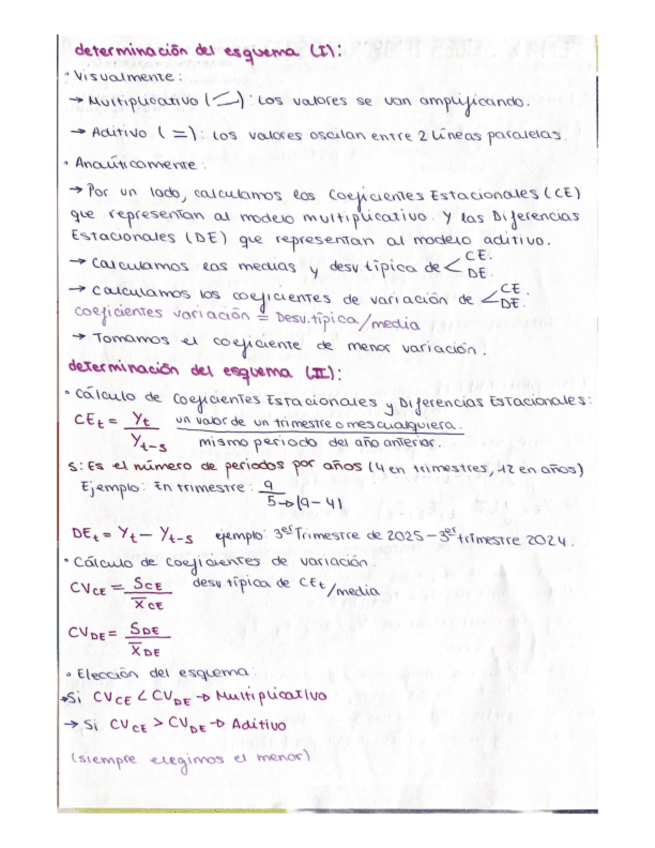 determinación del esquema (I):
• Visualmente:
→ Multiplicativo (<): Los valores se van amplificando.
→ Aditivo (=): Los valores oscilan entre 2 líneas paralelas.
• Analíticamente:
→ Por un lado, calculamos los Coeficientes Estacionales (CE)
que representan al modelo multiplicativo. Y las Diferencias
Estacionales (DE) que representan al modelo aditivo.
→ Calculamos las medias y desv. típica de < CE. DE.
→ Calculamos los coeficientes de variación de < CE. DE.
coeficientes variación = Desv. típica / media
→ Tomamos el coeficiente de menor variación.
determinación del esquema (II):
• Cálculo de Coeficientes Estacionales y Diferencias Estacionales:
CEt = Yt / Yt-s un valor de un trimestre o mes cualquiera. / mismo periodo del año anterior.
s: Es el número de periodos por años (4 en trimestres, 12 en años)
Ejemplo: En trimestre: 9 / 5 → (9-4)
DEt = Yt - Yt-s ejemplo: 3er Trimestre de 2025 - 3er trimestre 2024.
• Cálculo de coeficientes de variación.
CV CE = S CE / X̄ CE desv típica de CEt / media
CV DE = S DE / X̄ DE
• Elección del esquema:
→ Si CV CE < CV DE → Multiplicativo
→ Si CV CE > CV DE → Aditivo
(siempre elegimos el menor)